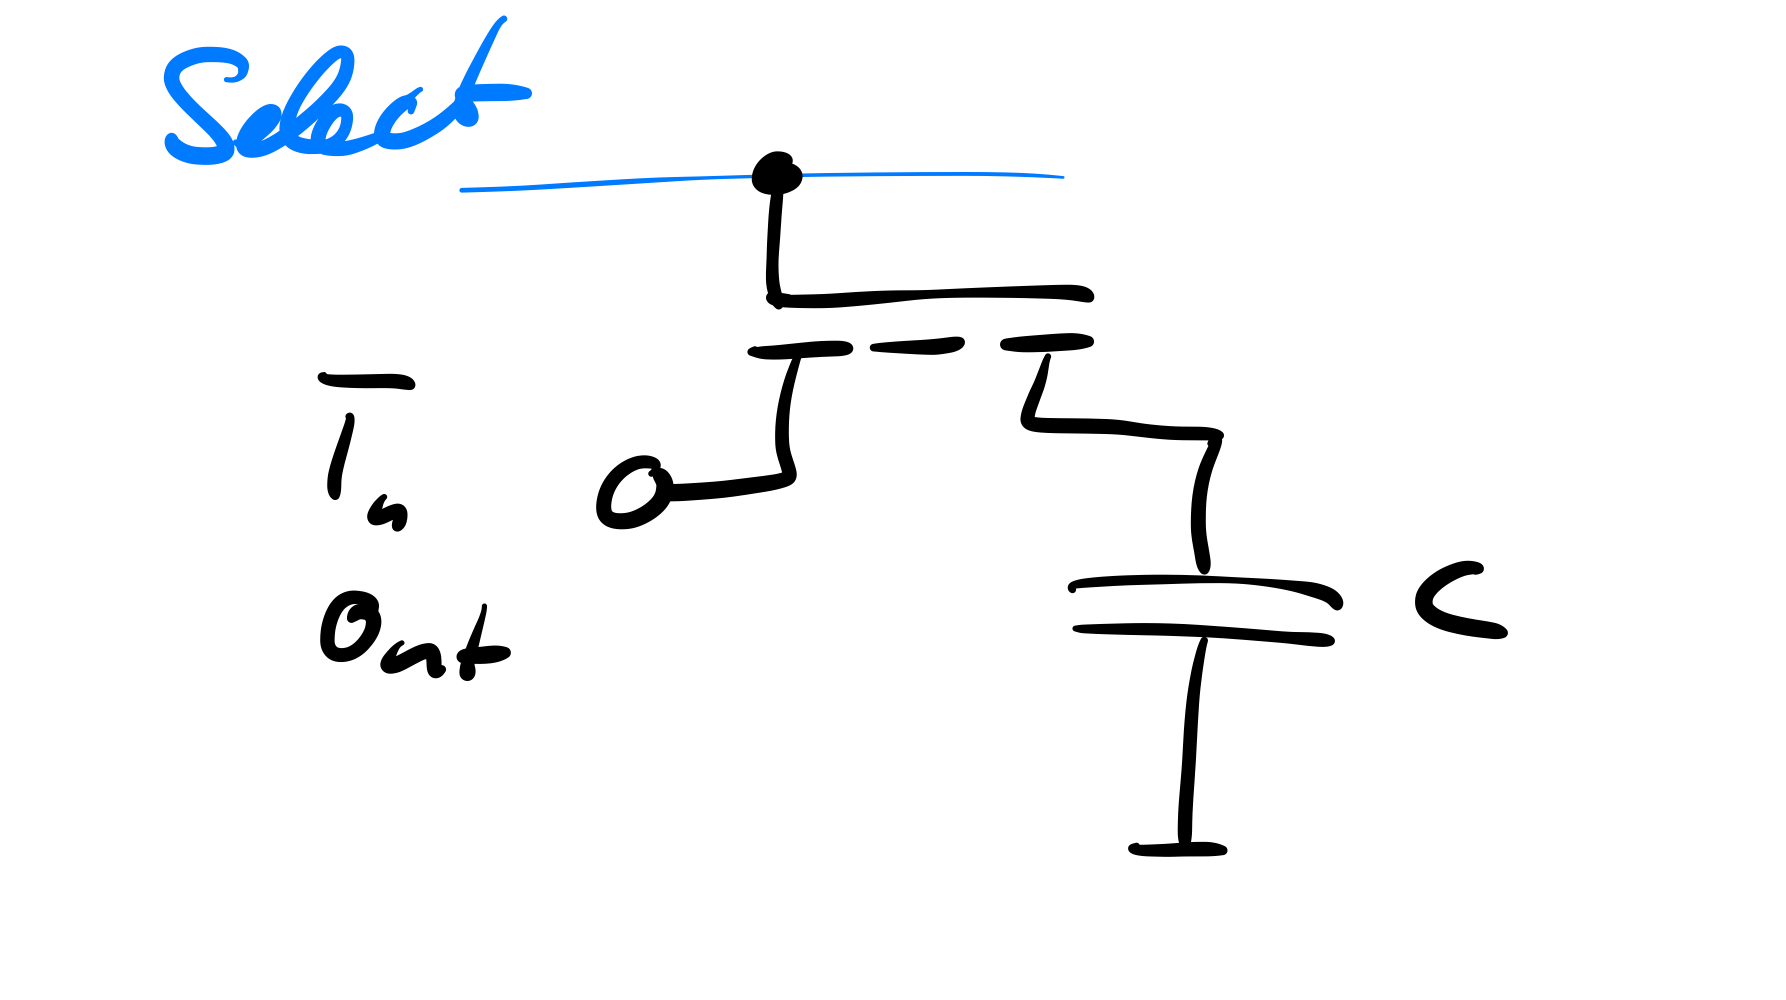 Select
In
Out
C